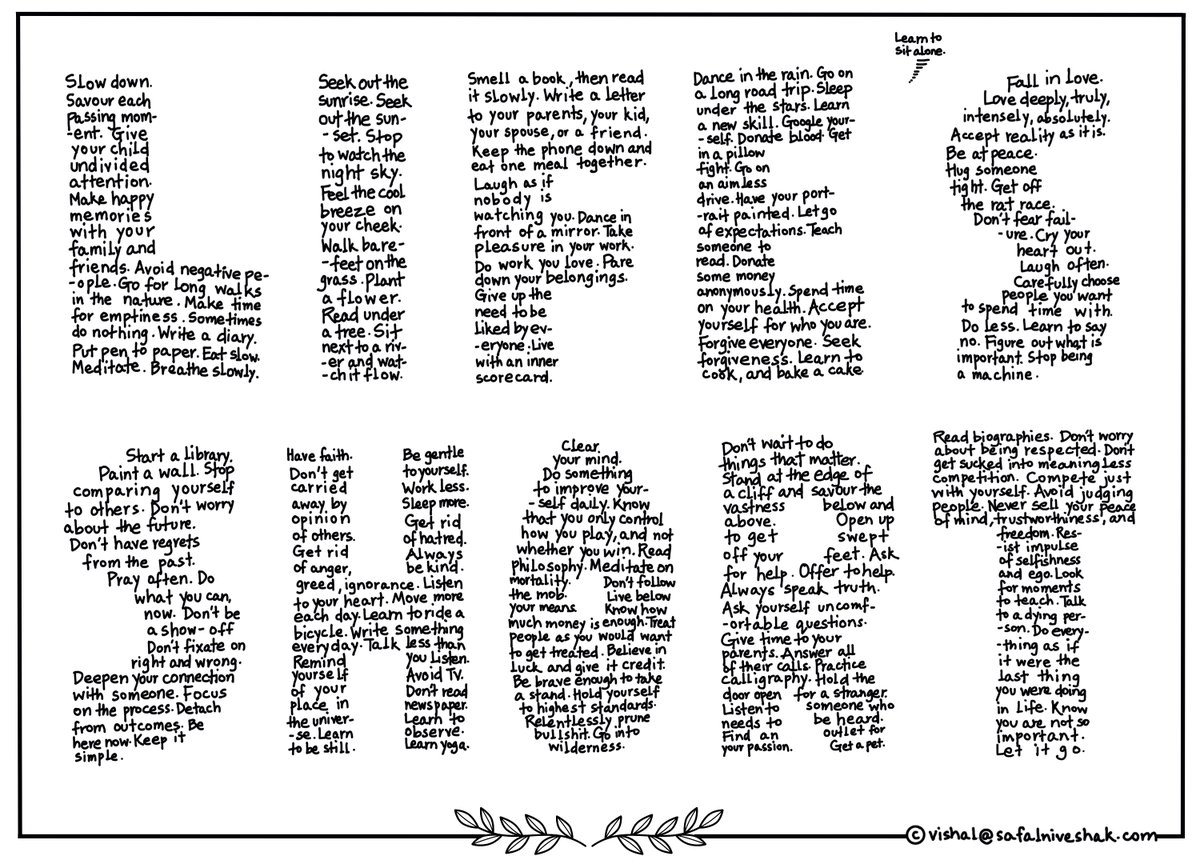 Slow down.
Savour each
passing mom-
-ent. Give
your child
undivided
attention.
Make happy
memories
with your
family and
friends. Avoid negative pe-
-ople. Go for long walks
in the nature. Make time
for emptiness. Sometimes
do nothing. Write a diary.
Put pen to paper. Eat slow.
Meditate. Breathe slowly.
Seek out the
sunrise. Seek
out the sun-
-set. Stop
to watch the
night sky.
Feel the cool
breeze on
your cheek.
Walk bare-
-feet on the
grass. Plant
a flower.
Read under
a tree. Sit
next to a riv-
-er and wat-
-ch it flow.
Smell a book, then read
it slowly. Write a letter
to your parents, your kid,
your spouse, or a friend.
Keep the phone down and
eat one meal together.
Laugh as if
nobody is
watching you. Dance in
front of a mirror. Take
pleasure in your work.
Do work you love. Pare
down your belongings.
Give up the
need to be
liked by ev-
-eryone. Live
with an inner
scorecard.
Dance in the rain. Go on
a long road trip. Sleep
under the stars. Learn
a new skill. Google your-
-self. Donate blood. Get
in a pillow
fight. Go on
an aimless
drive. Have your port-
-rait painted. Let go
of expectations. Teach
someone to
read. Donate
some money
anonymously. Spend time
on your health. Accept
yourself for who you are.
Forgive everyone. Seek
forgiveness. Learn to
cook, and bake a cake
Learn to
sit alone.
Fall in love.
Love deeply, truly,
intensely, absolutely.
Accept reality as it is.
Be at peace.
Hug someone
tight. Get off
the rat race.
Don't fear fail-
-ure. Cry your
heart out.
Laugh often.
Carefully choose
people you want
to spend time with.
Do less. Learn to say
no. Figure out what is
important. Stop being
a machine.
Start a Library.
Paint a wall. Stop
comparing yourself
to others. Don't worry
about the future.
Don't have regrets
from the past.
Pray often. Do
what you can,
now. Don't be
a show-off
Don't fixate on
right and wrong.
Deepen your connection
with someone. Focus
on the process. Detach
from outcomes. Be
here now. Keep it
simple.
Have faith.
Don't get
carried
away by
opinion
of others.
Get rid
of anger,
Be gentle
to yourself.
Work less.
Sleep more.
Get rid
of hatred.
Always
be kind.
greed, ignorance. Listen
to your heart. Move more
each day. Learn to ride a
bicycle. Write something
everyday. Talk less than
Remind
yourself
of your
place in
the univer-
-se. Learn
to be still.
you listen.
Avoid TV.
Don't read
newspaper.
Learn to
observe.
Learn yoga.
Clear
your mind.
Do something
to improve your-
-self daily. Know
that you only control
how you play, and not
whether you win. Read
philosophy. Meditate on
mortality. Don't follow
the mob. Live below
your means. Know how
much money is enough. Treat
people as you would want
to get treated. Believe in
luck and give it credit.
Be brave enough to take
a stand. Hold yourself
to highest standards.
Relentlessly prune
bullshit. Go into
wilderness.
Don't wait to do
things that matter.
Stand at the edge of
a cliff and savour the
vastness below and
above. Open up
to get swept
off your feet. Ask
for help. Offer to help.
Always speak truth.
Ask yourself uncomf-
-ortable questions.
Give time to your
parents. Answer all
of their calls. Practice
calligraphy. Hold the
door open for a stranger.
Listen to someone who
needs to be heard.
Find an outlet for
your passion. Get a pet.
Read biographies. Don't worry
about being respected. Don't
get sucked into meaningless
competition. Compete just
with yourself. Avoid judging
people. Never sell your peace
of mind, trustworthiness, and
freedom. Res-
-ist impulse
of selfishness
and ego. Look
for moments
to teach. Talk
to a dying per-
-son. Do every-
-thing as if
it were the
last thing
you were doing
in life. Know
you are not so
important.
Let it go.
© vishal@safalniveshak.com